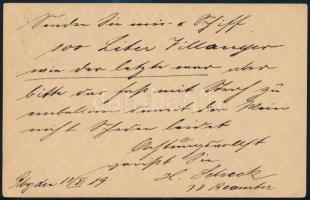 Senden Sie mir o Schiff
100 Liter Villanyer
wie der letzte war aber
bitte das faß mit Stroh zu
emballiren damit der Wein
nicht Schaden leidet
Achtungsvollst
grüßt Sie
H.
19